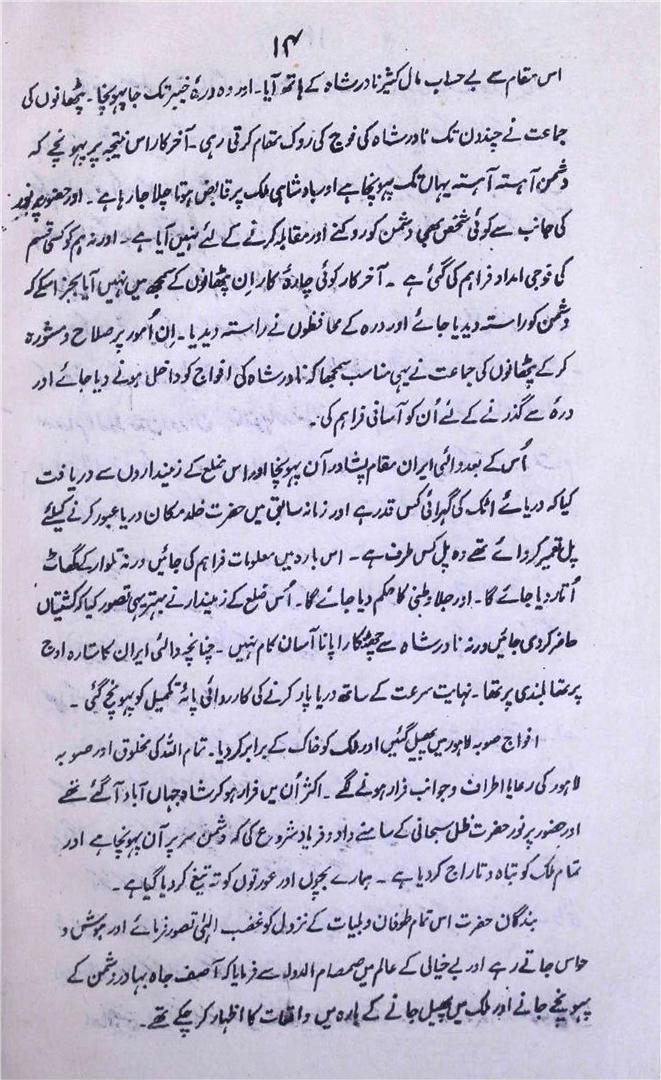 ۱۴
اس مقام سے بے حساب مال کثیر نادر شاہ کے ہاتھ آیا۔ اور وہ درۂ خیبر تک جا پہونچا۔ پٹھانوں کی
جماعت نے چند دن تک نادر شاہ کی فوج کی روک تھام کرتی رہی۔ آخر کار اس نتیجہ پر پہونچے کہ
دشمن آہستہ آہستہ یہاں تک پہونچا ہے اور بادشاہی ملک پر قابض ہوتا چلا جا رہا ہے۔ اور حضور پر نور
کی جانب سے کوئی شخص بھی دشمن کو روکنے اور مقابلہ کرنے کے لئے نہیں آیا ہے۔ اور نہ ہم کو کسی قسم
کی فوجی امداد فراہم کی گئی ہے ۔ آخر کار کوئی چارۂ کار اِن پٹھانوں کے سمجھ میں نہیں آیا بجز اسکے کہ
دشمن کو راستہ دیدیا جائے اور درہ کے محافظوں نے راستہ دیدیا۔ اِن اُمور پر صلاح و مشورہ
کر کے پٹھانوں کی جماعت نے یہی مناسب سمجھا کہ نادر شاہ کی افواج کو داخل ہونے دیا جائے اور
درۂ سے گذرنے کے لئے اُن کو آسانی فراہم کی۔
اُس کے بعد والئی ایران مقام پشاور آن پہونچا اور اس ضلع کے زمینداروں سے دریافت
کیا کہ دریائے اٹک کی گہرائی کس قدر ہے اور زمانہ سابق میں حضرت خلد مکان دریا عبور کرنے کیلئے
پل تعمیر کروائے تھے وہ پل کس طرف ہے۔ اس بارہ میں معلومات فراہم کی جائیں ورنہ تلوار کے گھاٹ
اُتار دیا جائے گا۔ اور جلا وطنی کا حکم دیا جائے گا۔ اُس ضلع کے زمیندار نے بہتر یہی تصور کیا کہ کشتیاں
حاضر کردی جائیں ورنہ نادر شاہ سے چھٹکارا پانا آسان کام نہیں ۔ چنانچہ والئی ایران کا ستارہ اوج
پر تھا بلندی پر تھا۔ نہایت سرعت کے ساتھ دریا پار کرنے کی کارروائی پائۂ تکمیل کو پہونچ گئی ۔
افواج صوبہ لاہور میں پھیل گئیں اور ملک کو خاک کے برابر کر دیا۔ تمام اللہ کی مخلوق اور صوبہ
لاہور کی رعایا اطراف و جوانب فرار ہونے لگے ۔ اکثر اُن میں فرار ہو کر شاہ جہاں آباد آ گئے تھے
اور حضور پر نور حضرت ظل سبحانی کے سامنے داد و فریاد شروع کی کہ دشمن سر پر آن پہونچا ہے اور
تمام ملک کو تباہ و تاراج کر دیا ہے ۔ ہمارے بچوں اور عورتوں کو تہ تیغ کر دیا گیا ہے۔
بندگان حضرت اس تمام طوفان و بلیات کے نزول کو غضب الہٰی تصور فرمائے اور ہوشش و
حواس جاتے رہے اور بے خیالی کے عالم میں صمصام الدولہ سے فرمایا کہ آصف جاہ بہادر دشمن کے
پہونچے جانے اور ملک میں پھیل جانے کے بارہ میں واقعات کا اظہار کر چکے تھے ۔